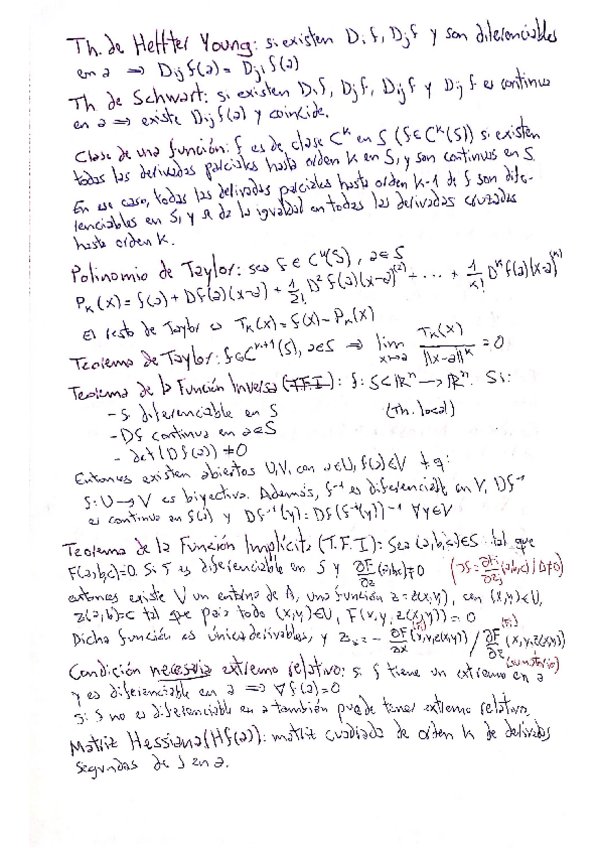 Th. de Heffter Young: si existen Dif, Djf y son diferenciables
en a ⇒ Dijf(a) = Djif(a)
Th de Schwart: si existen Dif, Djf, Dijf y Dijf es continua
en a ⇒ existe Djif(a) y coincide.
Clase de una función: f es de clase C^k en S (f∈C^k(S)) si existen
todas las derivadas parciales hasta orden k en S, y son continuas en S.
En ese caso, todas las derivadas parciales hasta orden k-1 de f son dife-
renciables en S, y se da la igualdad en todas las derivadas cruzadas
hasta orden k.
Polinomio de Taylor: sea f∈C^k(S), a∈S
P_k(x) = f(a) + Df(a)(x-a) + 1/2! D²f(a)(x-a)^(2) + ··· + 1/k! D^k f(a)(x-a)^(k)
El resto de Taylor es T_k(x) = f(x) - P_k(x)
Teorema de Taylor: f∈C^(k+1)(S), a∈S ⇒ lim x→a T_k(x)/||x-a||^k = 0
Teorema de la Función Inversa (T.F.I): f: S⊂ℝⁿ → ℝⁿ. Si:
- f diferenciable en S (Th. local)
- Df continua en a∈S
- det(Df(a)) ≠ 0
Entonces existen abiertos U, V, con a∈U, f(a)∈V tq:
f: U → V es biyectiva. Además, f⁻¹ es diferenciable en V, Df⁻¹
es continua en f(a) y Df⁻¹(y) = Df(f⁻¹(y))⁻¹ ∀y∈V
Teorema de la Función Implícita (T.F.I): Sea (a,b,c)∈S tal que
F(a,b,c)=0. Si F es diferenciable en S y ∂F/∂z (a,b,c) ≠ 0
entonces existe V un entorno de A, una función z = z(x,y), con (x,y)∈U,
z(a,b)=c tal que para todo (x,y)∈U, F(x,y,z(x,y)) = 0
Dicha función es única derivables, y z_x = - ∂F/∂x (x,y,z(x,y)) / ∂F/∂z (x,y,z(x,y))
Condición necesaria extremo relativo: si f tiene un extremo en a
y es diferenciable en a ⇒ ∇f(a)=0
si f no es diferenciable en a también puede tener extremo relativo.
Matriz Hessiana (Hf(a)): matriz cuadrada de orden k de derivadas
segundas de f en a.